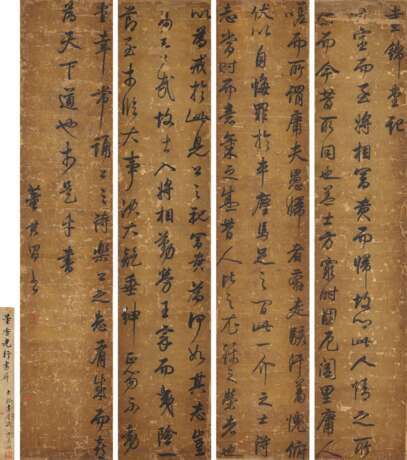 晝錦堂記
仕宦而至將相富貴而歸故鄉此人情之所
榮而今昔所同也蓋士方窮時困厄閭里庸人
嗟而所謂庸夫愚婦者奔走駭汗羞愧俯
伏以自悔罪於車塵馬足之間此一介之士得
志當時而意氣之盛昔人比之衣錦之榮者也
以為戒於此見公之視富貴為何如其志豈
易量哉故出入將相勤勞王家而夷險一
節至於臨大事決大疑垂紳正笏不動
堂幸嘗誦公之詩樂公之志有成而喜
為天下道也於是乎書
董其昌書
董香光行書屏